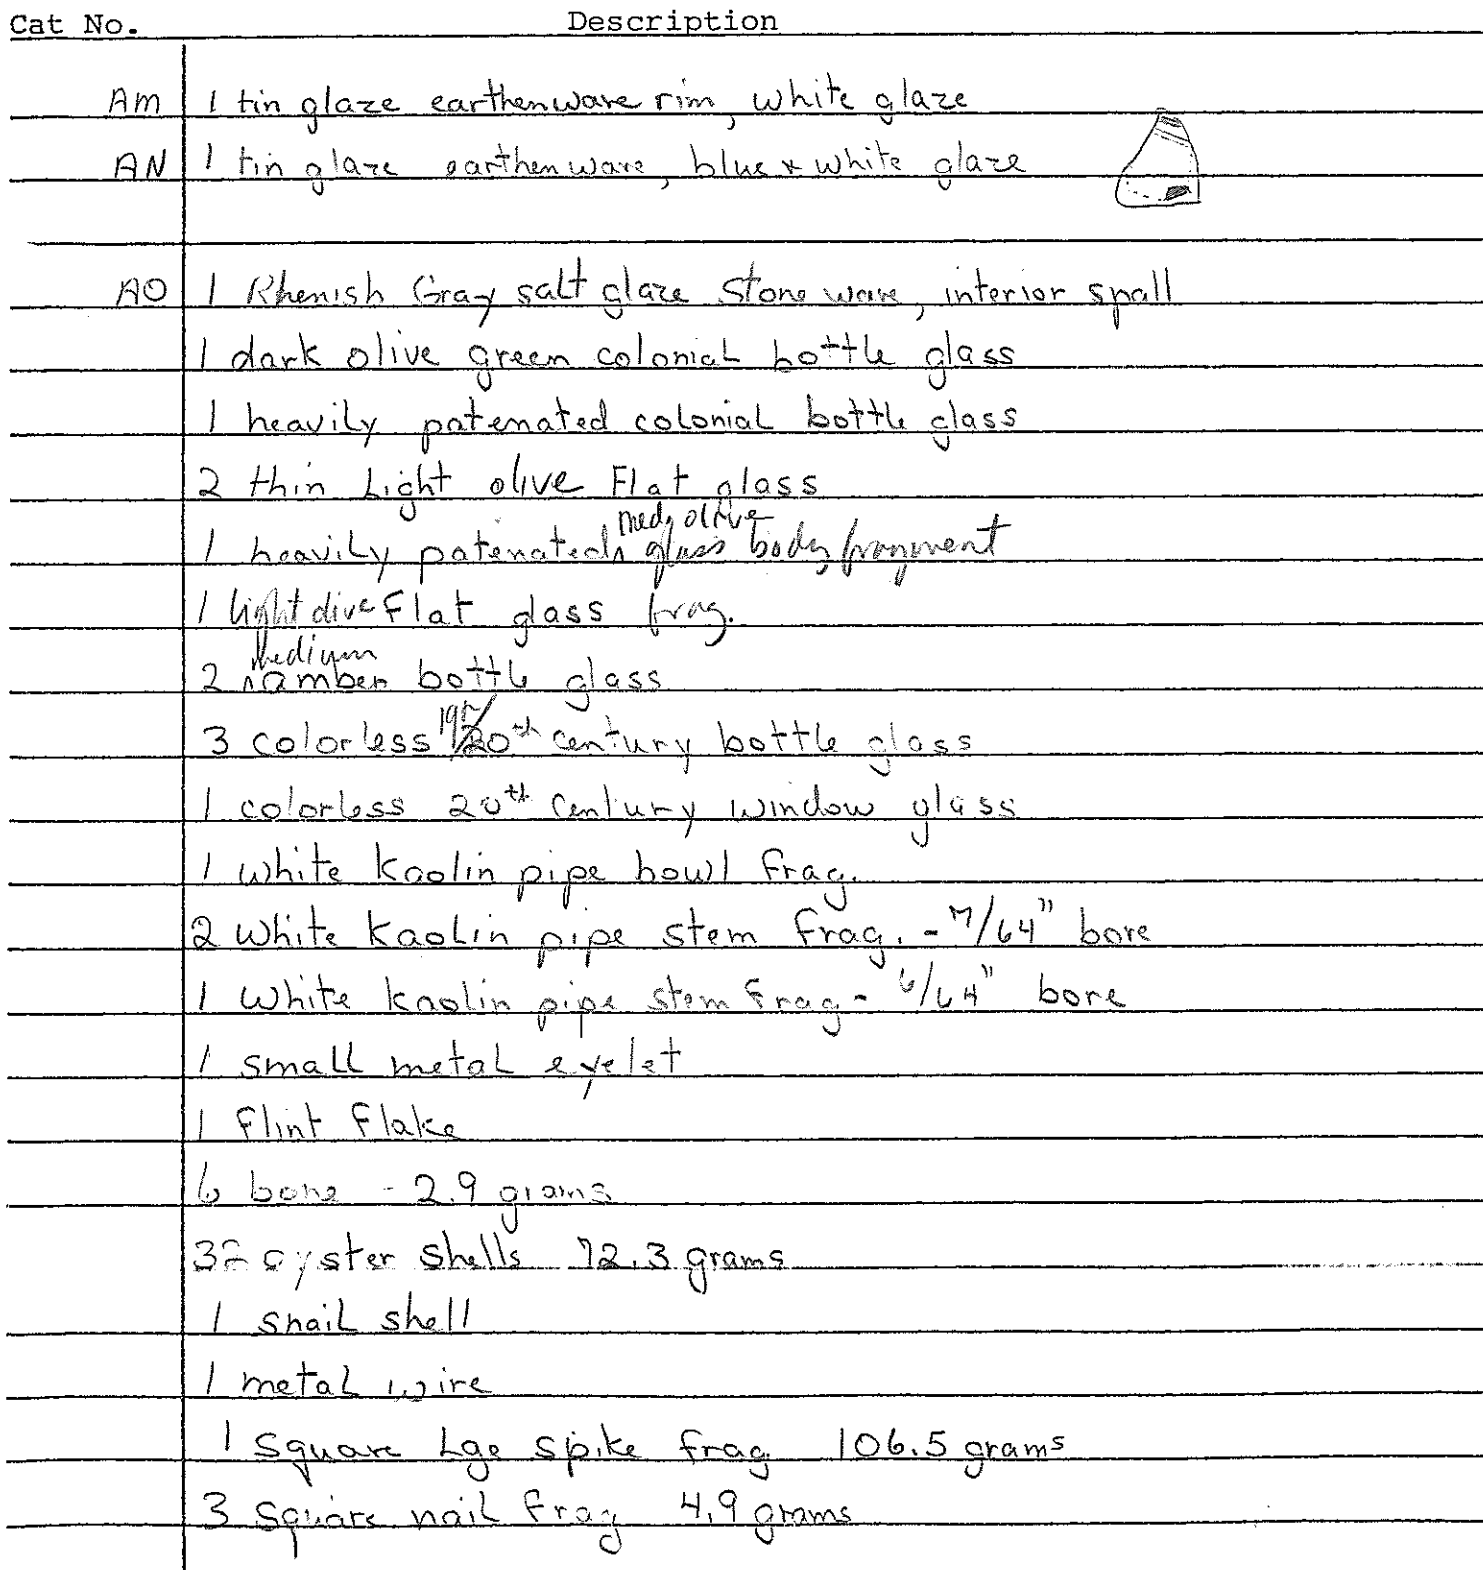 Cat No. Description
AM 1 tin glaze earthenware rim, white glaze
AN 1 tin glaze earthenware, blue & white glaze
AO 1 Rhenish Gray salt glaze Stoneware, interior spall
1 dark olive green colonial bottle glass
1 heavily patenated colonial bottle glass
2 thin Light olive Flat glass
1 heavily patenated med. olive glass body fragment
1 light olive Flat glass frag.
2 medium amber bottle glass
3 colorless 19th/20th century bottle glass
1 colorless 20th Century window glass
1 white Kaolin pipe bowl frag.
2 White Kaolin pipe stem frag. - 7/64" bore
1 White Kaolin pipe stem frag - 6/64" bore
1 small metal eyelet
1 Flint Flake
6 bone - 2.9 grams
32 oyster shells 72.3 grams
1 snail shell
1 metal wire
1 Square Lge spike frag 106.5 grams
3 Square nail frag 4.9 grams